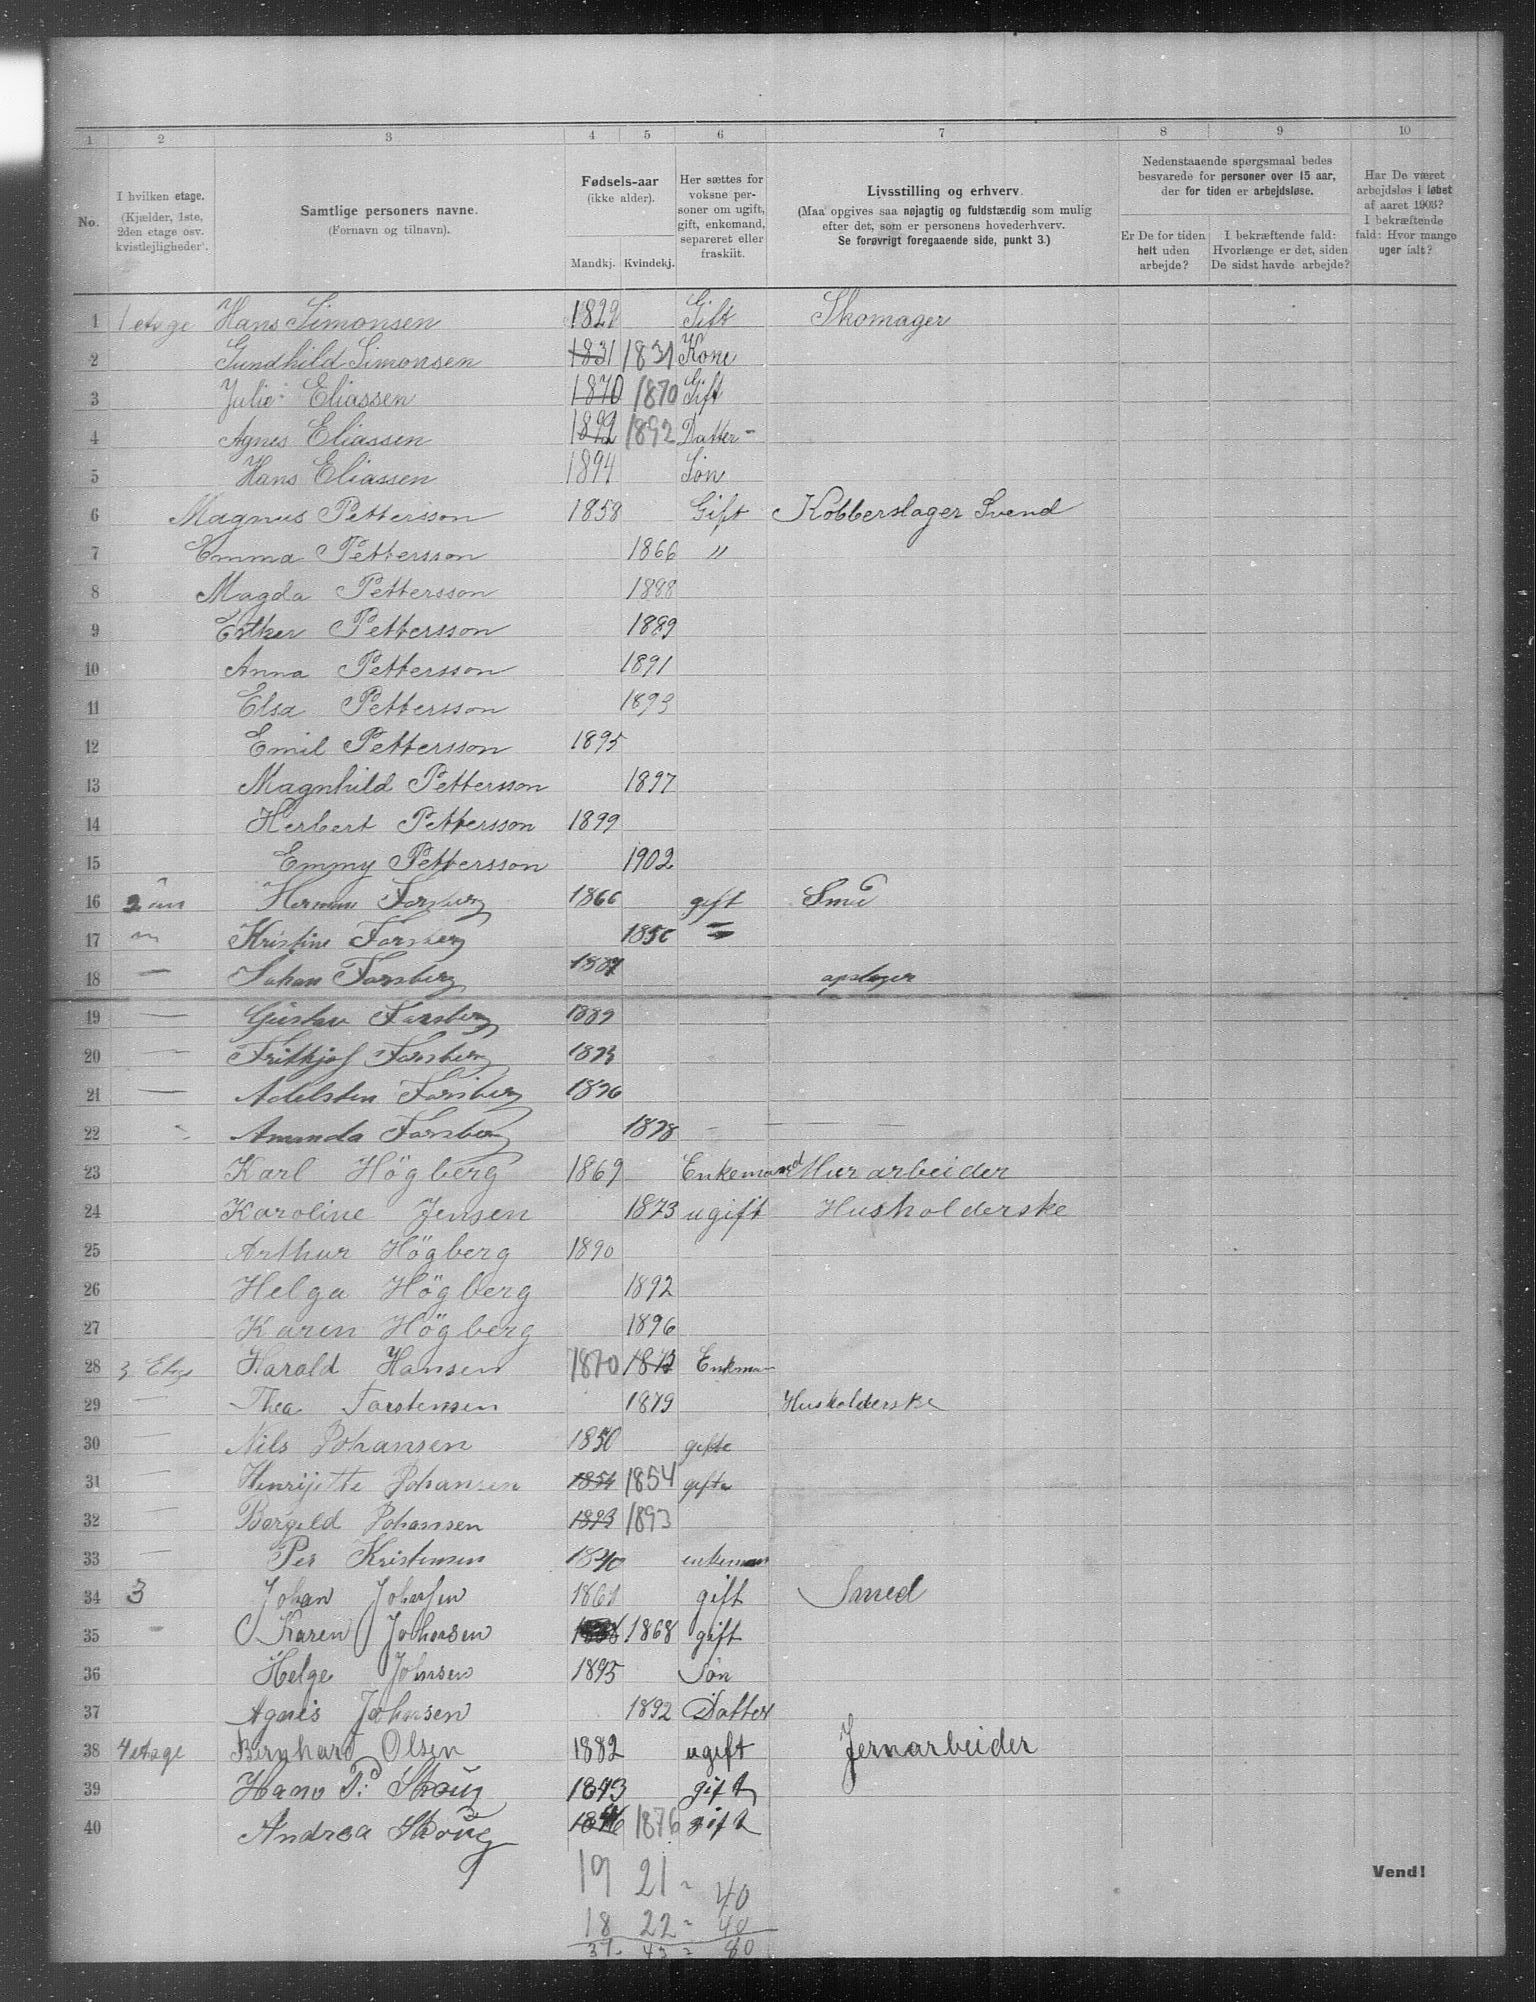 1 2 3 4 5 6 7 8 9 10
No.
I hvilken etage.
(Kjælder, 1ste,
2den etage osv.
kvistlejligheder).
Samtlige personers navne.
(Fornavn og tilnavn).
Fødsels-aar
(ikke alder).
Mandkj. Kvindekj.
Her sættes for
voksne per-
soner om ugift,
gift, enkemand,
separeret eller
fraskilt.
Livsstilling og erhverv.
(Maa opgives saa nøjagtig og fuldstændig som mulig
efter det, som er personens hovederhverv.
Se forøvrigt foregaaende side, punkt 3.)
Nedenstaaende spørgsmaal bedes
besvarede for personer over 15 aar,
der for tiden er arbejdsløse.
Er De for tiden
helt uden
arbejde?
I bekræftende fald:
Hvorlænge er det, siden
De sidst havde arbejde?
Har De været
arbejdsløs i løbet
af aaret 1903?
I bekræftende
fald: Hvor mange
uger ialt?
1 1 etage Hans Simonsen 1829 Gift Skomager
2 Gundhild Simonsen 1831 1831 Kone
3 Julie Eliassen 1870 1870 Gift
4 Agnes Eliassen 1892 1892 Datter
5 Hans Eliassen 1894 Søn
6 Magnus Pettersson 1858 Gift Kobberslager Svend
7 Emma Pettersson 1866 "
8 Magda Pettersson 1888
9 Esther Pettersson 1889
10 Anna Pettersson 1891
11 Elsa Pettersson 1893
12 Emil Pettersson 1895
13 Magnhild Pettersson 1897
14 Herbert Pettersson 1899
15 Emmy Pettersson 1902
16 Herman Forsberg 1866 gift Smed
17 Kristine Forsberg
18 — Johan Forsberg 1887
19 — Gustav Forsberg 1889
20 — Frithjof Forsberg 1893
21 — Adelsten Forsberg 1896
22 Amanda Forsberg 1898 — — —
23 Karl Högberg 1869 Enkemand Murarbeider
24 Karoline Jensen 1873 ugift Husholderske
25 Arthur Högberg 1890
26 Helga Högberg 1892
27 Karen Högberg 1896
28 3 Etg Harald Hansen 1870 1872 Enkeman
29 — Thea Torstensen 1879 Husholderske
30 — Nils Johansen 1850 gifte
31 — Henrijette Johansen 1854 1854 gifte
32 — Borgild Johansen 1893 1893
33 — Per Kristensen 1840 enkeman
34 3 Johan Johansen 1861 gift Smed
35 - Karen Johansen 1868 gift
36 Helge Johnsen 1895 Søn
37 Agnes Johnsen 1892 Datter
38 4 etage Bernhard Olsen 1882 ugift Jernarbeider
39 Hans P. Skoug 1873 gift
40 Andrea Skoug 1876 1876 gift
19 21 - 40
18 22 - 40
37 - 43 = 80
Vend!